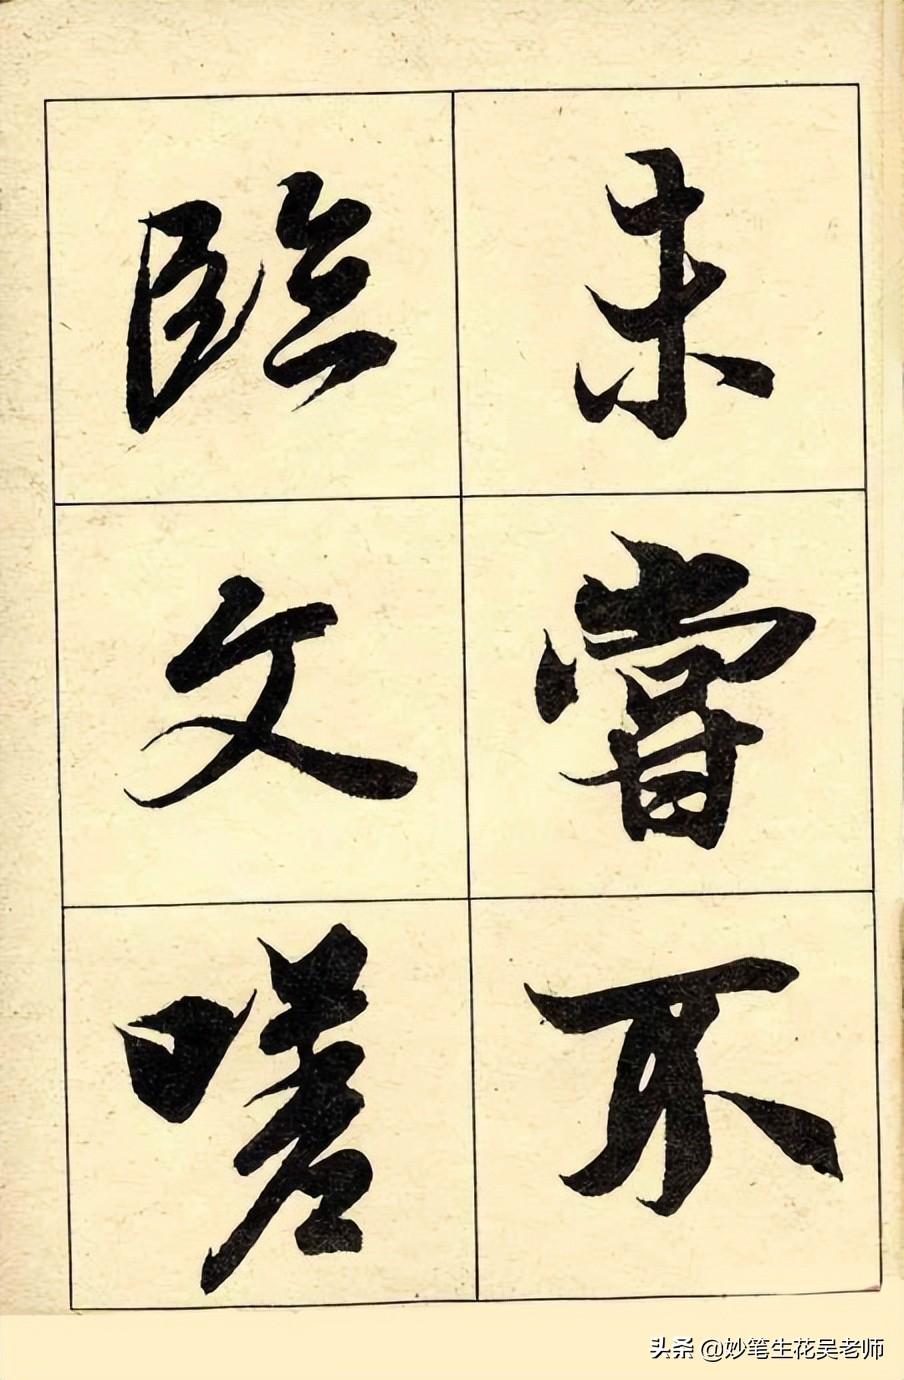 未嘗不
臨文嗟
头条 @妙笔生花吴老师